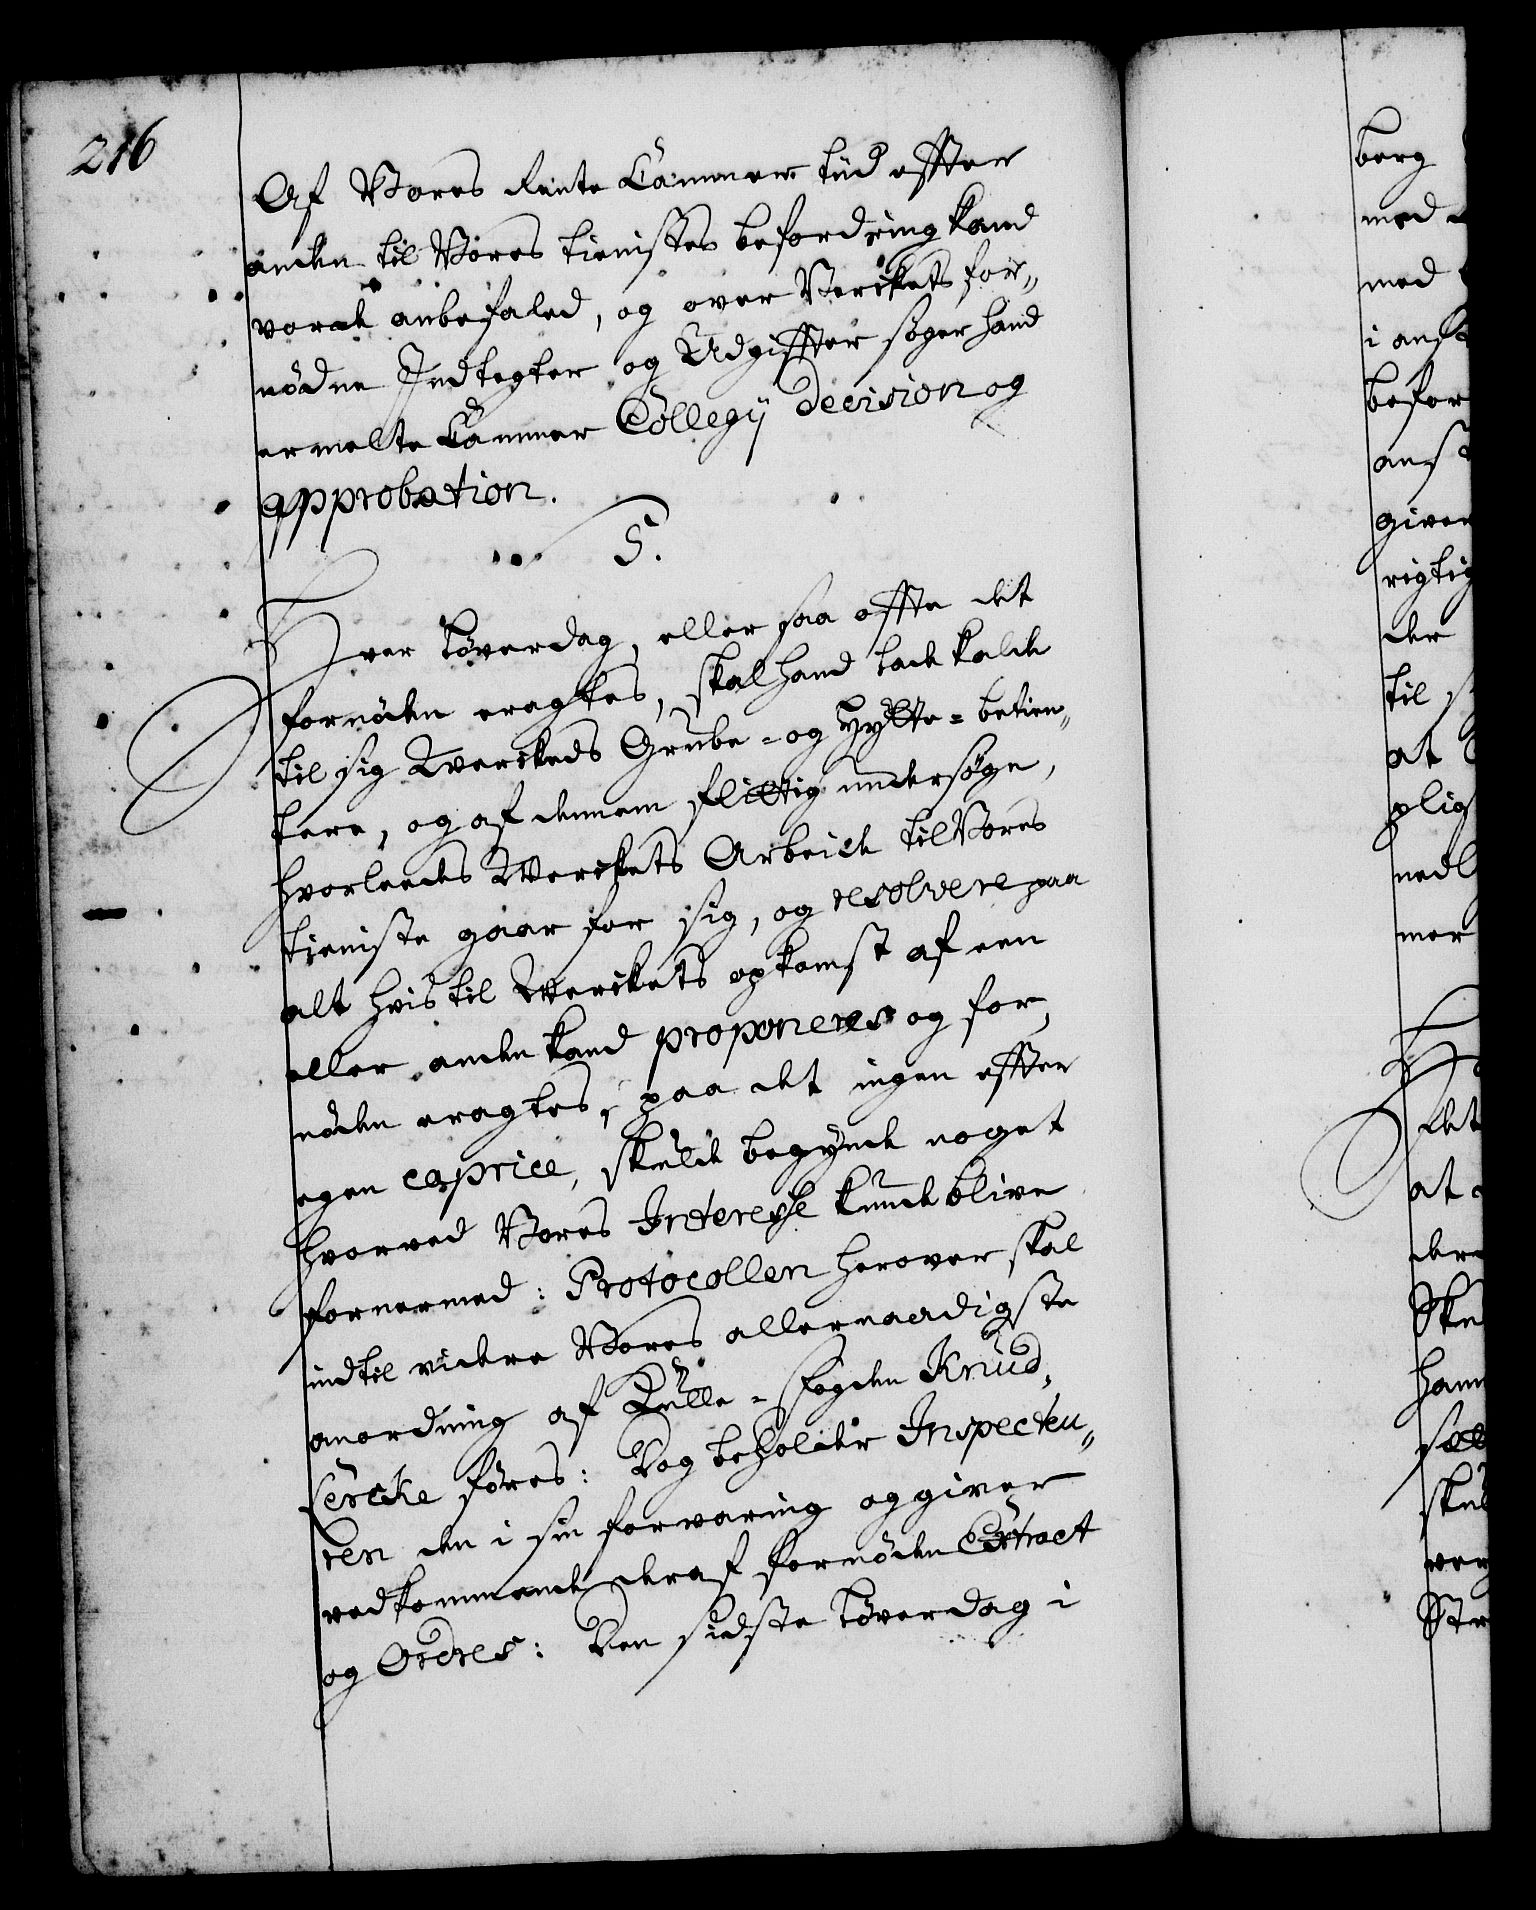 216
Af Vores Rente Cammer tiid efter
anden til Vores tienistes befordring kand
vorde anbefaled, og over Verckets for„
nødne Indtegter og Udgiffter søger hand
ermelte Cammer Collegij decision og
approbation.
5.
Hver Løverdag, eller saa offte det
fornøden eragtes, skal hand lade kalde
til sig Werckeds Grube- og Hytte-betien„
tere, og af dennem flittig undersøge,
hvorleedes Werckets Arbeide til Vores
tieniste gaar for sig, og resolvere paa
alt hvis til Werckets opkomst af een
eller anden kand proponeres og for„
nøden eragtes, paa det ingen effter
egen caprice, skulde begynde noget
hvorved Vores Interesse kunde blive
fornermed: Protocollen herover skal
indtil videre Vores allernaadigste
anordning af Kulle-fogden Knud
Lercke føres: Dog beholder Inspecteu„
ren den i sin forvaring og giver
vedkommende deraf fornøden Extract
og Ordres: Den sidste Løverdag i
berg
med
med
i ans
befor
anst
giver
rigtig
der
til
at
plig
nedl
mer
det
at
dere
Ske
ham
skul
ver
Str